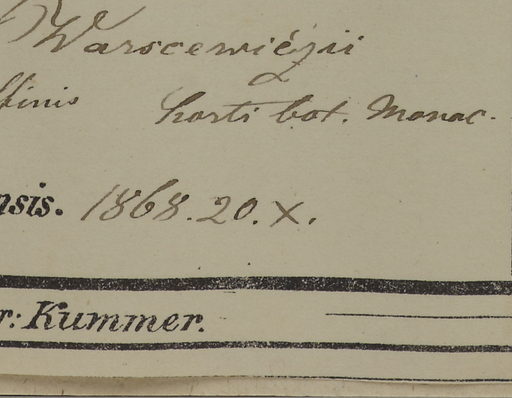 Warscewiczii
ffinis horti bot. Monac.
nsis. 1868. 20. X.
r: Kummer.